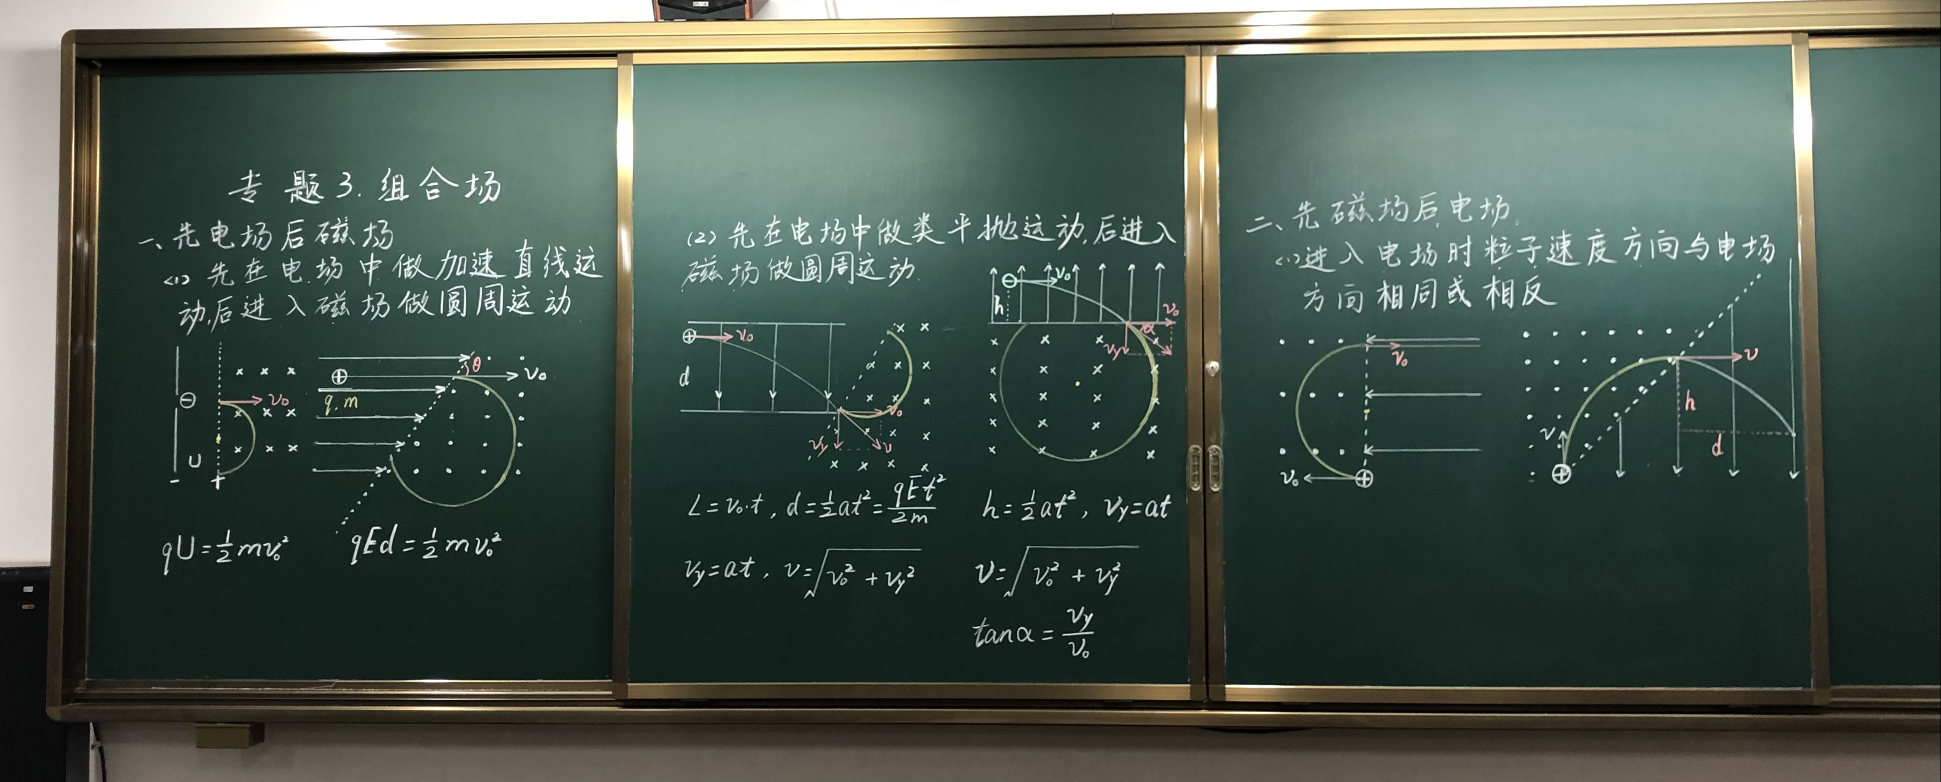 专题3.组合场
一、先电场后磁场
(1) 先在电场中做加速直线运
动,后进入磁场做圆周运动
v₀
U
- +
θ
v₀
q.m
qU=½mv₀²
qEd=½mv₀²
(2) 先在电场中做类平抛运动,后进入
磁场做圆周运动
v₀
d
v₀
vy
v
h
v₀
v₀
α
vy
L=v₀·t, d=½at²=qEt²/2m
vy=at, v=√(v₀²+vy²)
h=½at², vy=at
v=√(v₀²+vy²)
tanα=vy/v₀
二、先磁场后电场
(1)进入电场时粒子速度方向与电场
方向相同或相反
v₀
v₀
v
h
d
v